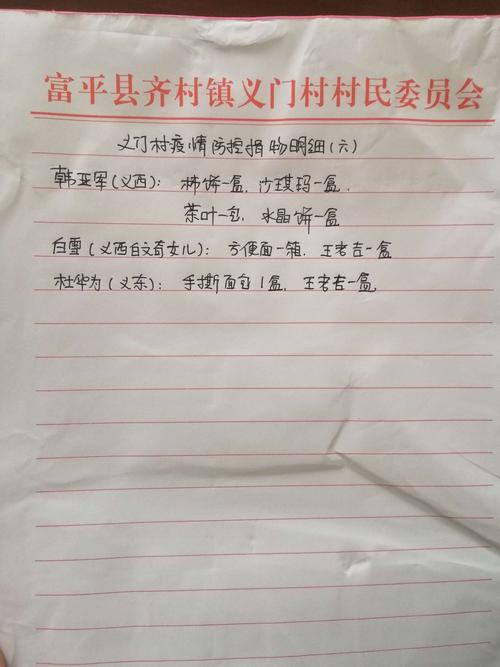 富平县齐村镇义门村村民委员会
义门村疫情防控捐物明细(六)
韩亚军(义西)：柿饼一盒，沙琪玛一盒，
茶叶一包，水晶饼一盒
白雪(义西白文奇女儿)：方便面一箱，王老吉一盒
杜华为(义东)：手撕面包1盒，王老吉一盒，